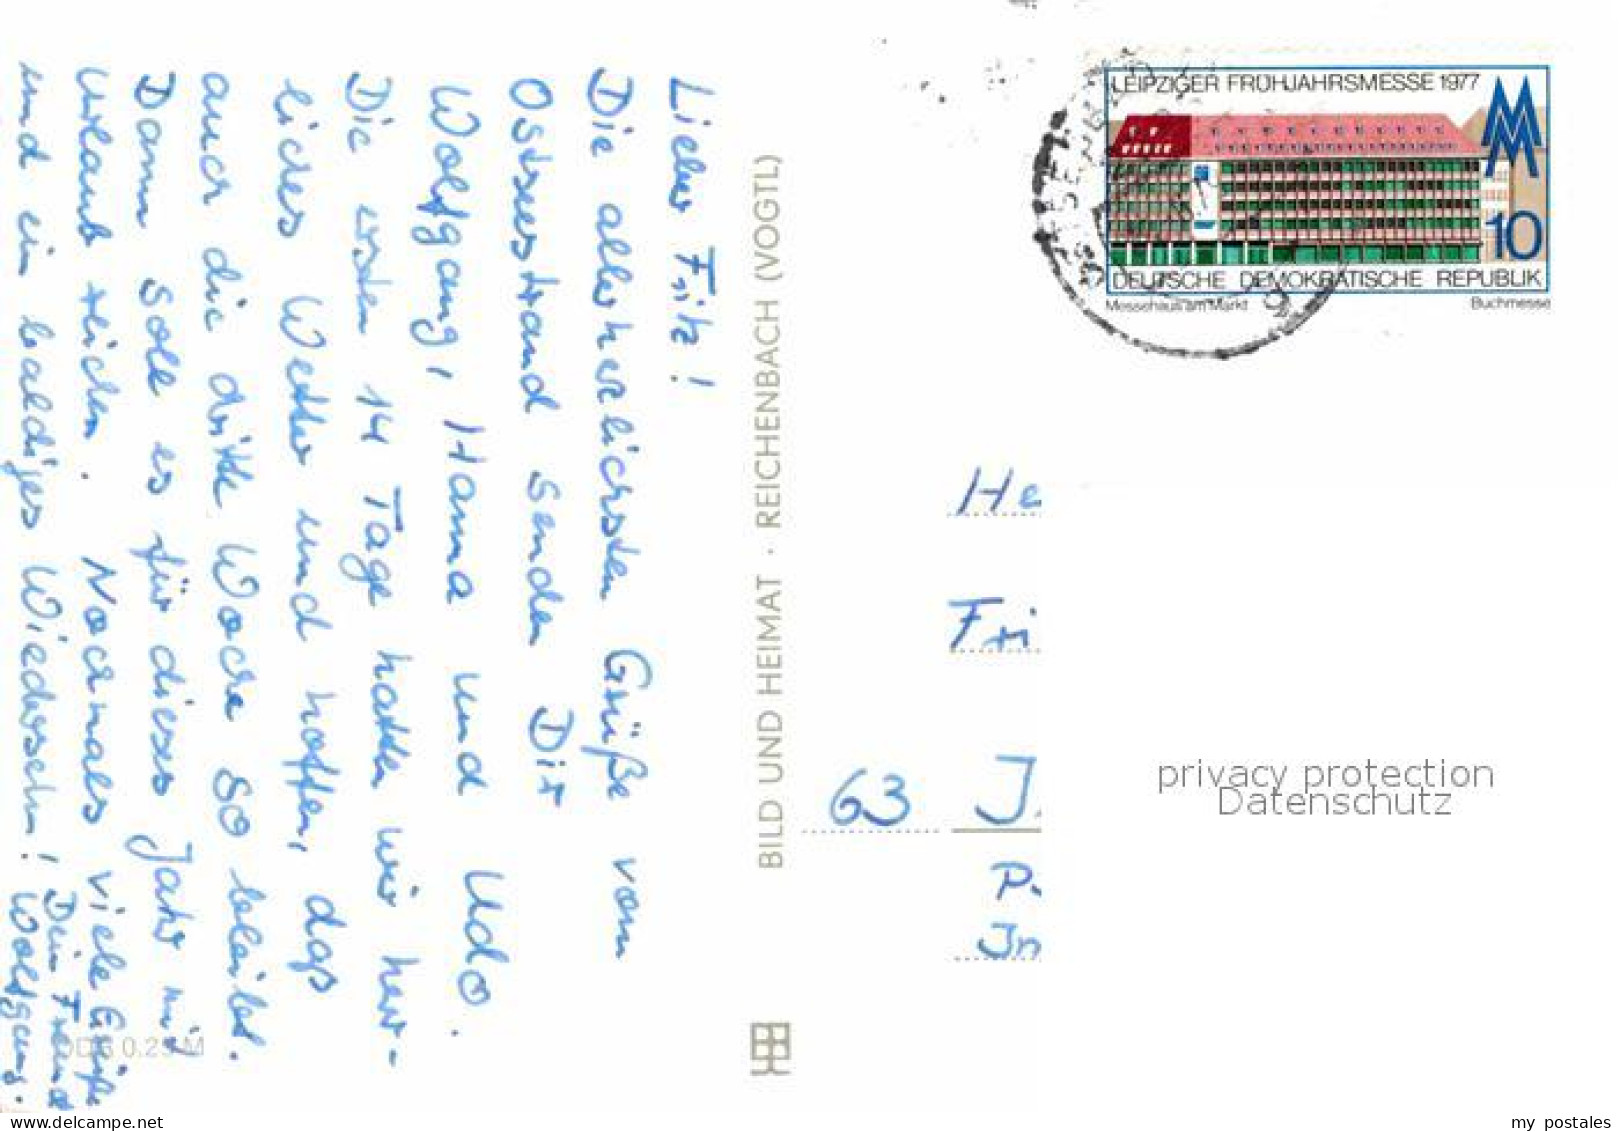 Lieber Fritz!
Die allerherzlichsten Grüße vom
Ostseestrand senden Dir
Wolfgang, Hanna und Udo.
Die ersten 14 Tage hatten wir herr-
liches Wetter und hoffen, das
auch die dritte Woche so bleibt.
Dann soll es für dieses Jahr mit
Urlaub reichen. Nochmals viele Grüße
und ein baldiges Wiedersehn! Dein Freund
Wolfgang.
0.25 M
BILD UND HEIMAT · REICHENBACH (VOGTL)
LEIPZIGER FRÜHJAHRSMESSE 1977
MM
10
DEUTSCHE DEMOKRATISCHE REPUBLIK
Messehaus am Markt Buchmesse
He
Fri
63 J
P
Jn
privacy protection
Datenschutz
my postales
www.delcampe.net